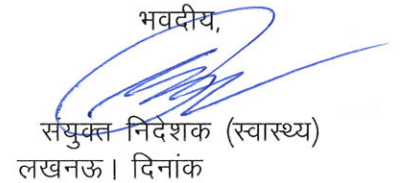 भवदीय,
संयुक्त निदेशक (स्वास्थ्य)
लखनऊ। दिनांक